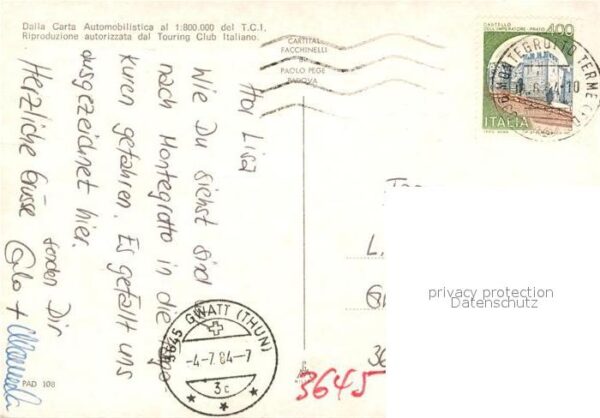 Dalla Carta Automobilistica al 1:800.000 del T.C.I.
Riproduzione autorizzata dal Touring Club Italiano.
CARTITAL
FACCHINELLI
DI
PAOLO PEGE
PADOVA
CASTELLO
DELL'IMPERATORE - PRATO
400
ITALIA
MONTEGROTTO TERME
Lisa
Wie Du siehst sind
nach Montegrotto in die
kuren gefahren. Es gefällt uns
ausgezeichnet hier.
senden Dir
Herzliche Grüsse
3645 GWATT (THUN)
-4-7 84-7
3c
3645
L.
36
PAD 108
privacy protection
Datenschutz